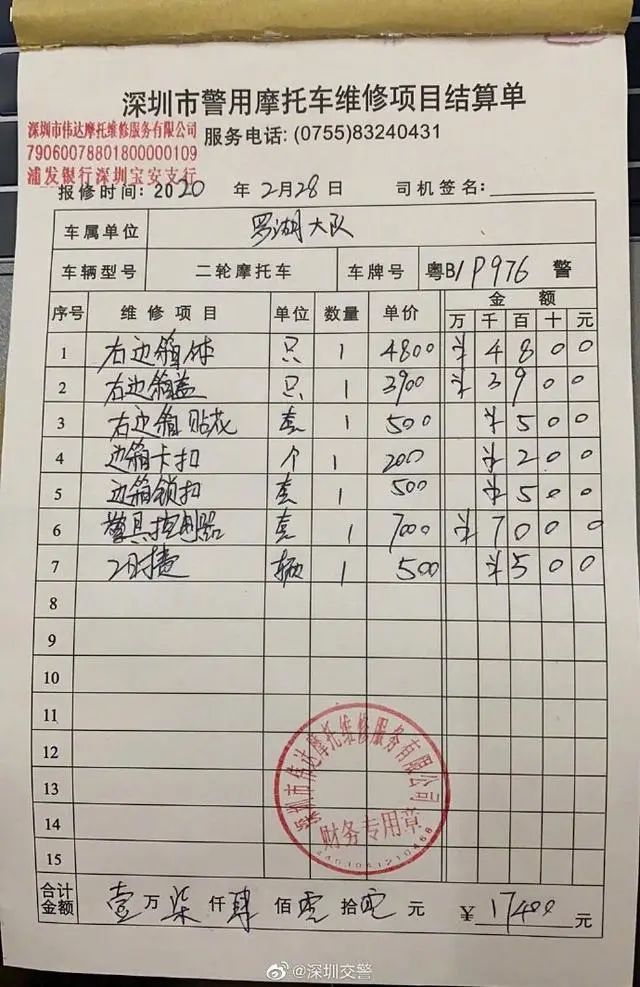 深圳市警用摩托车维修项目结算单
深圳市伟达摩托维修服务有限公司
服务电话:(0755)83240431
79060078801800000109
浦发银行深圳宝安支行
报修时间:2020 年 2月28日 司机签名:
车属单位 罗湖大队
车辆型号 二轮摩托车 车牌号 粤B/P976 警
序号 维修项目 单位 数量 单价 金额
万 千 百 十 元
1 右边箱体 只 1 4800 ¥ 4 8 0 0
2 右边箱盖 只 1 3900 ¥ 3 9 0 0
3 右边箱贴花 套 1 500 ¥ 5 0 0
4 边箱卡扣 个 1 200 ¥ 2 0 0
5 边箱锁扣 套 1 500 ¥ 5 0 0
6 警具控制器 套 1 7000 ¥ 7 0 0 0
7 工时费 辆 1 500 ¥ 5 0 0
8
9
10
11
12
13
14
15
深圳市伟达摩托维修服务有限公司
财务专用章
合计金额 壹万柒仟肆佰零拾零元 ¥ 17400 元
@深圳交警